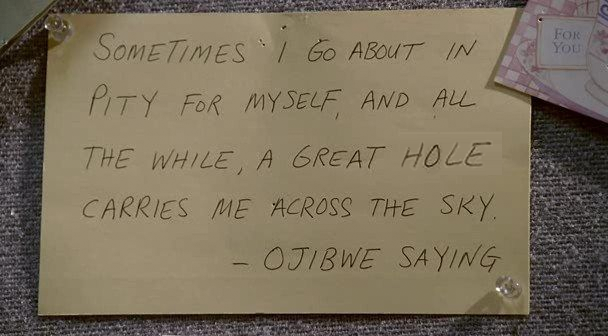 SOMETIMES I GO ABOUT IN
PITY FOR MYSELF, AND ALL
THE WHILE, A GREAT HOLE
CARRIES ME ACROSS THE SKY.
- OJIBWE SAYING
FOR
YOU